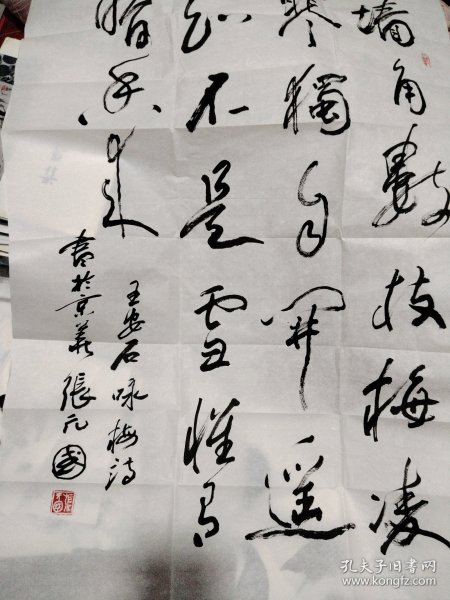 墙角數枝梅凌
寒獨自開遥
知不是雪惟有
暗香来
王安石咏梅詩
書於京華張元國
孔夫子旧书网
www.kongfz.com